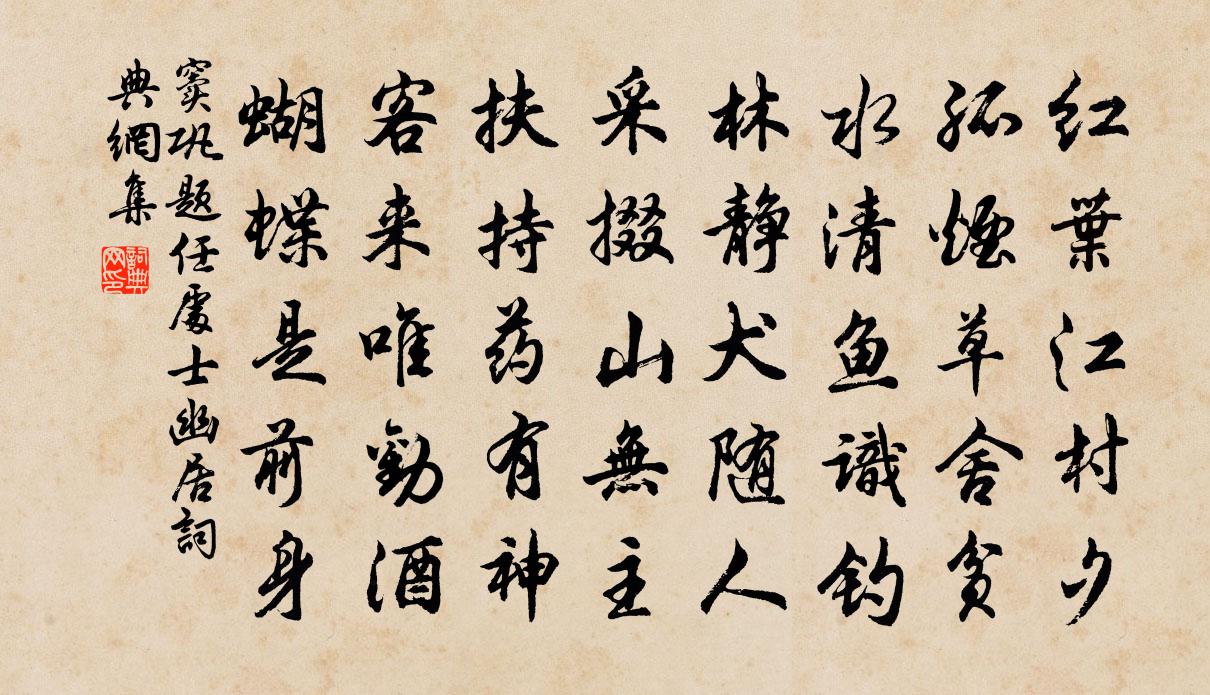 红葉江村夕
孤煙草舍貧
水清鱼識钓
林靜犬随人
采掇山無主
扶持药有神
客来唯勸酒
蝴蝶是前身
窦巩题任處士幽居詞
典網集
詞典
网印